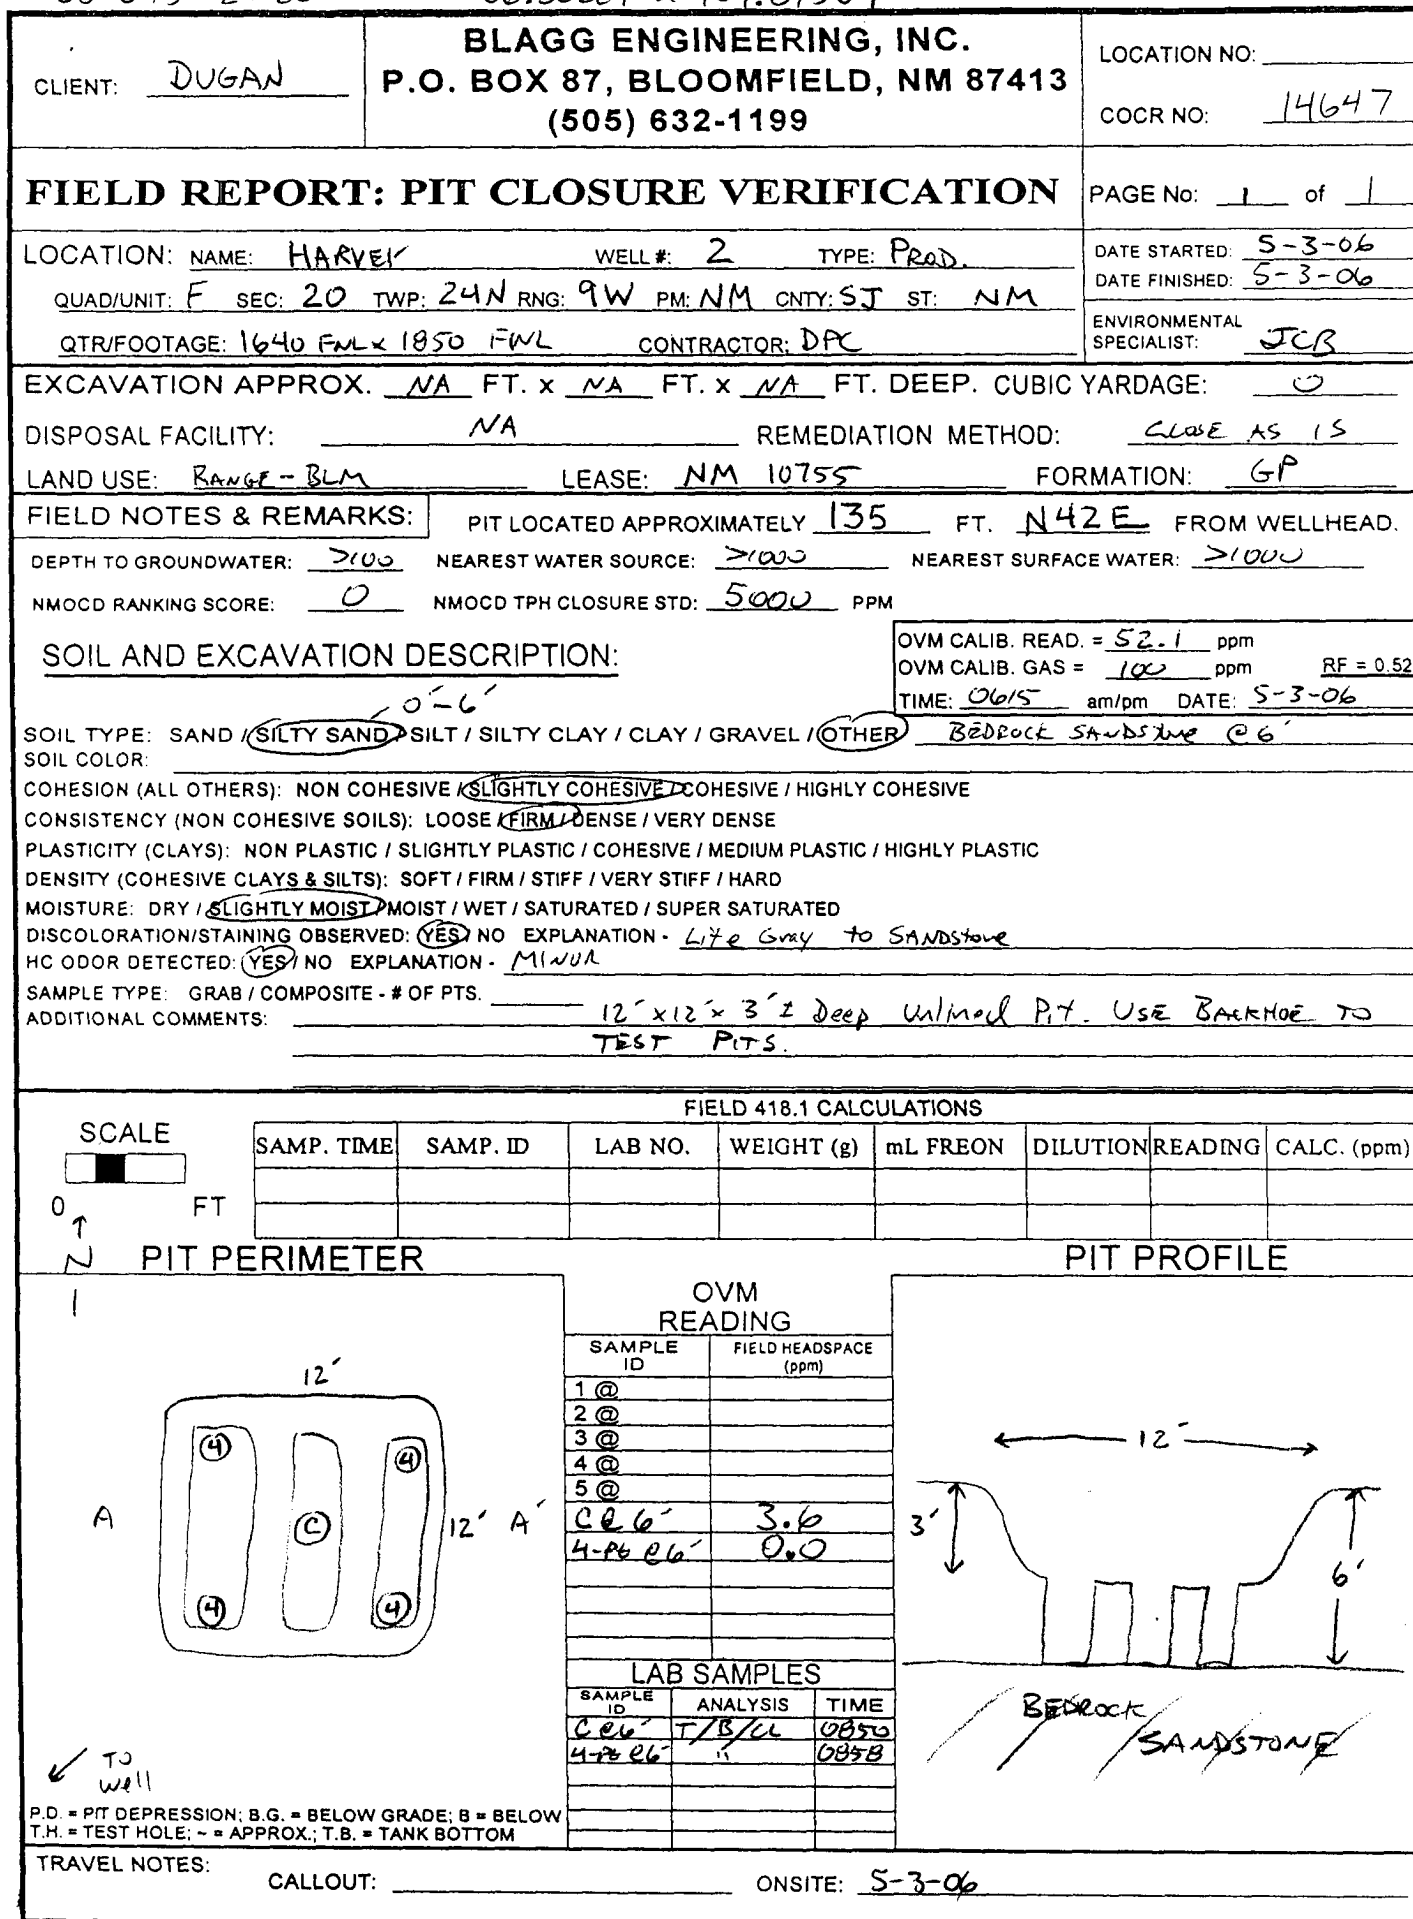 BLAGG ENGINEERING, INC.
P.O. BOX 87, BLOOMFIELD, NM 87413
(505) 632-1199
CLIENT: DUGAN
LOCATION NO:
COCR NO: 14647
FIELD REPORT: PIT CLOSURE VERIFICATION
PAGE No: 1 of 1
LOCATION: NAME: HARVEY WELL #: 2 TYPE: PROD.
QUAD/UNIT: F SEC: 20 TWP: 24N RNG: 9W PM: NM CNTY: SJ ST: NM
QTR/FOOTAGE: 1640 FNL x 1850 FWL CONTRACTOR: DPC
DATE STARTED: 5-3-06
DATE FINISHED: 5-3-06
ENVIRONMENTAL
SPECIALIST: JCB
EXCAVATION APPROX. NA FT. x NA FT. x NA FT. DEEP. CUBIC YARDAGE: 0
DISPOSAL FACILITY: NA REMEDIATION METHOD: CLOSE AS IS
LAND USE: RANGE - BLM LEASE: NM 10755 FORMATION: GP
FIELD NOTES & REMARKS: PIT LOCATED APPROXIMATELY 135 FT. N42E FROM WELLHEAD.
DEPTH TO GROUNDWATER: >100 NEAREST WATER SOURCE: >1000 NEAREST SURFACE WATER: >1000
NMOCD RANKING SCORE: 0 NMOCD TPH CLOSURE STD: 5000 PPM
SOIL AND EXCAVATION DESCRIPTION:
OVM CALIB. READ. = 52.1 ppm
OVM CALIB. GAS = 100 ppm RF = 0.52
TIME: 0615 am/pm DATE: 5-3-06
0'-6'
SOIL TYPE: SAND / SILTY SAND / SILT / SILTY CLAY / CLAY / GRAVEL / OTHER BEDROCK SANDSTONE @ 6'
SOIL COLOR:
COHESION (ALL OTHERS): NON COHESIVE / SLIGHTLY COHESIVE / COHESIVE / HIGHLY COHESIVE
CONSISTENCY (NON COHESIVE SOILS): LOOSE / FIRM / DENSE / VERY DENSE
PLASTICITY (CLAYS): NON PLASTIC / SLIGHTLY PLASTIC / COHESIVE / MEDIUM PLASTIC / HIGHLY PLASTIC
DENSITY (COHESIVE CLAYS & SILTS): SOFT / FIRM / STIFF / VERY STIFF / HARD
MOISTURE: DRY / SLIGHTLY MOIST / MOIST / WET / SATURATED / SUPER SATURATED
DISCOLORATION/STAINING OBSERVED: YES / NO EXPLANATION - Lite Gray to SANDStone
HC ODOR DETECTED: YES / NO EXPLANATION - MINOR
SAMPLE TYPE: GRAB / COMPOSITE - # OF PTS.
ADDITIONAL COMMENTS: 12' x 12' x 3' ± Deep Unlined Pit. USE BACKHOE TO
TEST PITS.
FIELD 418.1 CALCULATIONS
SCALE
0 FT
SAMP. TIME SAMP. ID LAB NO. WEIGHT (g) mL FREON DILUTION READING CALC. (ppm)
N
PIT PERIMETER
PIT PROFILE
OVM
READING
SAMPLE ID FIELD HEADSPACE (ppm)
1 @
2 @
3 @
4 @
5 @
C @ 6' 3.6
4-Pt @ 6' 0.0
LAB SAMPLES
SAMPLE ID ANALYSIS TIME
C @ 6' T/B/CL 0850
4-Pt @ 6' " 0858
12'
4 4
A C 12' A'
4 4
TO
well
12'
3'
6'
BEDROCK
SANDSTONE
P.D. = PIT DEPRESSION; B.G. = BELOW GRADE; B = BELOW
T.H. = TEST HOLE; ~ = APPROX.; T.B. = TANK BOTTOM
TRAVEL NOTES:
CALLOUT: ONSITE: 5-3-06